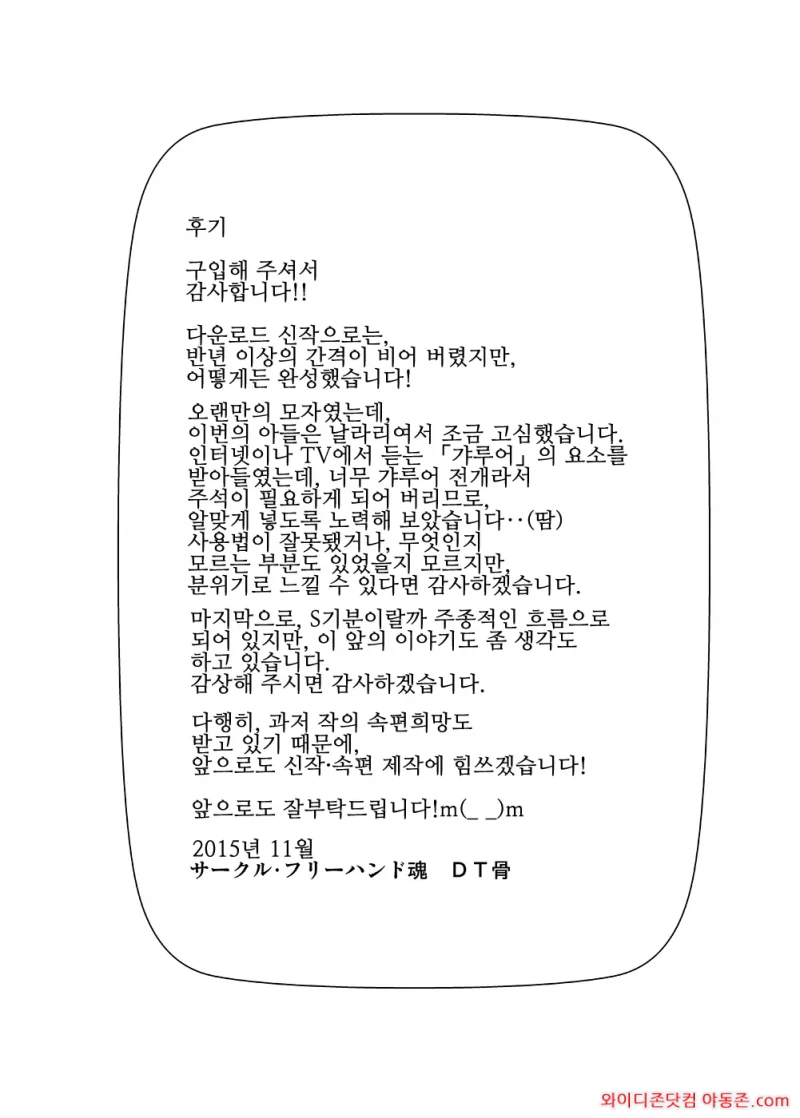 후기
구입해 주셔서
감사합니다!!
다운로드 신작으로는,
반년 이상의 간격이 비어 버렸지만,
어떻게든 완성했습니다!
오랜만의 모자였는데,
이번의 아들은 날라리여서 조금 고심했습니다.
인터넷이나 TV에서 듣는 「갸루어」의 요소를
받아들였는데, 너무 갸루어 전개라서
주석이 필요하게 되어 버리므로,
알맞게 넣도록 노력해 보았습니다‥(땀)
사용법이 잘못됐거나, 무엇인지
모르는 부분도 있었을지 모르지만,
분위기로 느낄 수 있다면 감사하겠습니다.
마지막으로, S기분이랄까 주종적인 흐름으로
되어 있지만, 이 앞의 이야기도 좀 생각도
하고 있습니다.
감상해 주시면 감사하겠습니다.
다행히, 과저 작의 속편희망도
받고 있기 때문에,
앞으로도 신작·속편 제작에 힘쓰겠습니다!
앞으로도 잘부탁드립니다!m(_ _)m
2015년 11월
サークル·フリーハンド魂　ＤＴ骨
와이디존닷컴 아동존.com